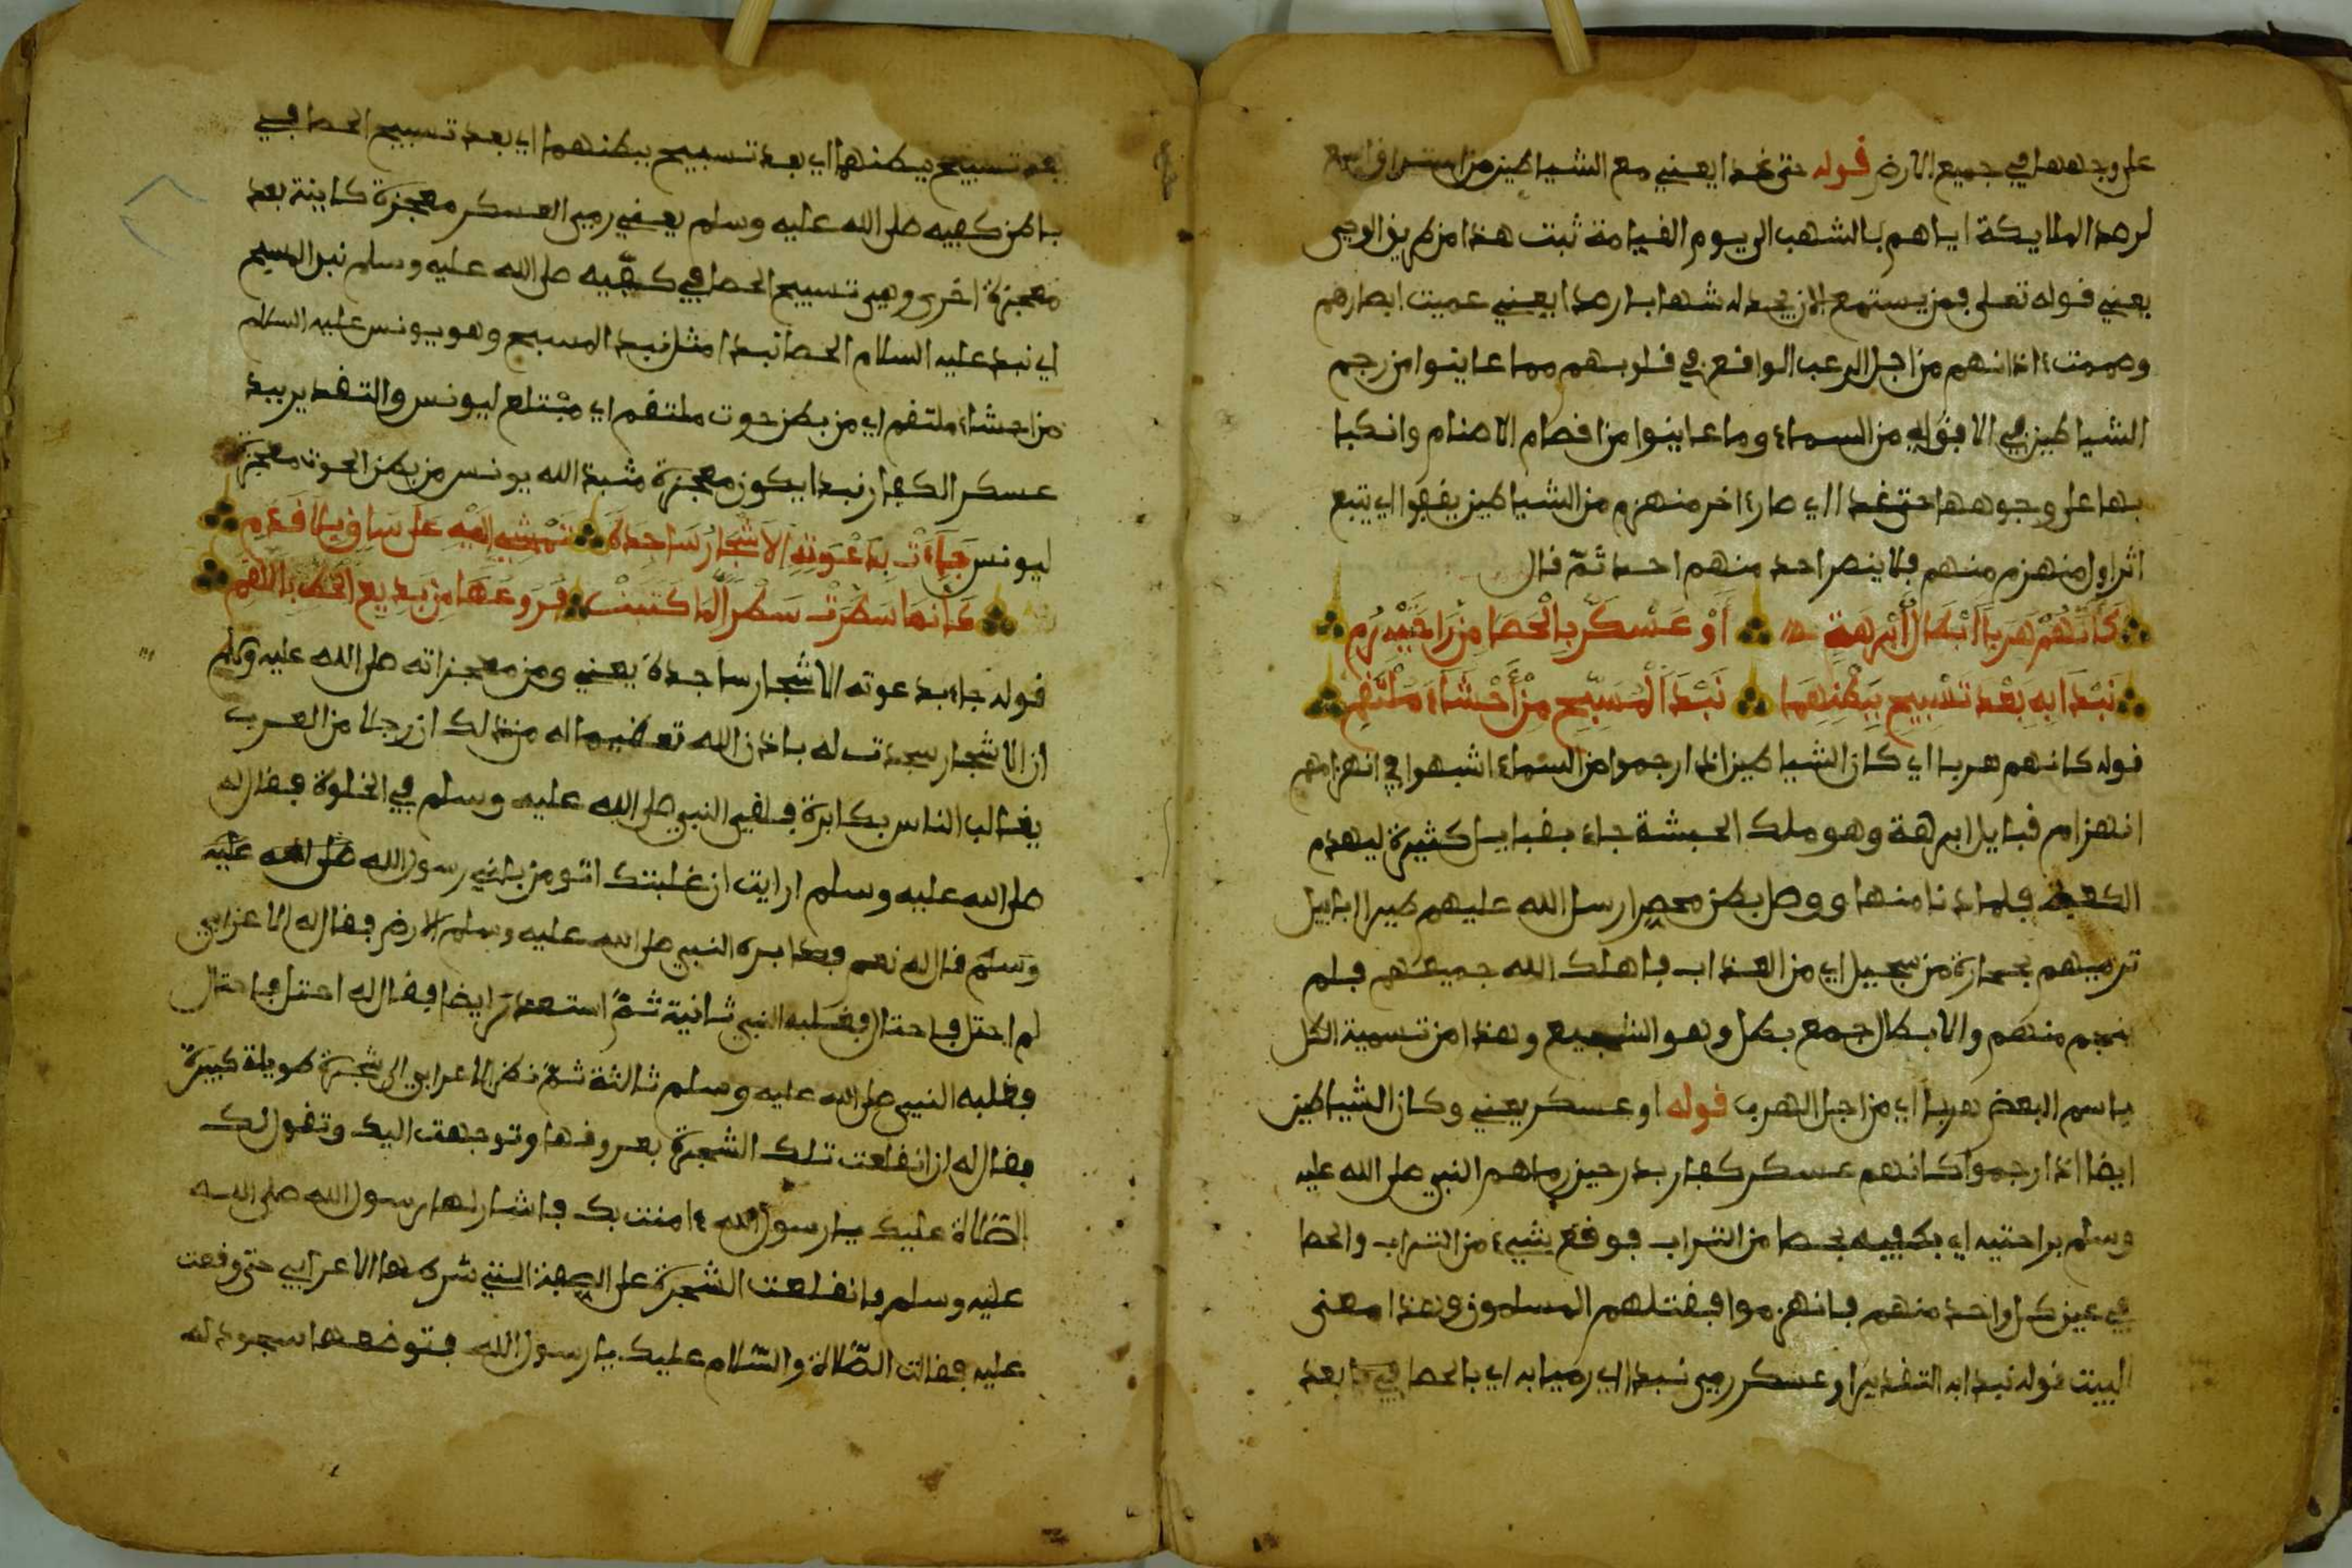 على وجهها في جميع الارض قوله حتى غدا يعني مع الشياطين من استراق السمع
لرصد الملايكة اياهم بالشهب الى يوم القيامة ثبت هذا من طريق الوحي
يعني قوله تعلى فمن يستمع الان يجد له شهابا رصدا يعني عميت ابصارهم
وصممت ءاذانهم من اجل الرعب الواقع في قلوبهم مما عاينوا من رجم
الشياطين في الافق اي من السماء وما عاينوا من افصام الاصنام وانكبا
بها على وجوهها حتى غدا اي صار ءاخر منهزم من الشياطين يقفوا اي يتبع
اثر اول منهزم منهم فلا ينصر احد منهم احد ثمّ قال
كَأَنَّهُمْ هَرَبا أَبْطَالُ أَبْرَهَةٍ أَوْ عَسْكَرٌ بِالْحَصَا مِن رَاحَتَيْهِ رُمِ
نَبْذًا بِهِ بَعْدَ تَسْبِيحٍ بِبَطْنِهِمَا نَبْذَ الْمُسَبِّحِ مِنْ أَحْشَاءِ مُلْتَقِمِ
قوله كانهم هربا اي كان الشياطين اذا رجموا من السماء اشبهوا في انهزامهم
انهزام قبايل ابرهة وهو ملك الحبشة جاء بقبايل كثيرة ليهدم
الكعبة فلما دنا منها ووصل بطن محصر ارسل الله عليهم طيرا ابابيل
ترميهم بحجارة من سجيل اي من العذاب فاهلك الله جميعهم فلم
ينج منهم والابطال جمع بطل وهو الشجيع وهذا من تسمية الكل
باسم البعض هربا اي من اجل الهرب قوله او عسكر يعني وكان الشياطين
ايضا اذا رجموا كانهم عسكر كفار بدر حين رماهم النبي صلى الله عليه
وسلم براحتيه اي بكفيه بحصا من التراب فوقع شيء من التراب والحصا
في عين كل واحد منهم فانهزموا فقتلهم المسلمون وهذا معنى
البيت قوله نبذا به التقدير او عسكر رمى نبذا اي رميا به اي بالحصا بعد
بعد تسبيح ببطنهما اي بعد تسبيح ببطنهما اي بعد تسبيح الحصا في
باطن كفيه صلى الله عليه وسلم يعني رمي العسكر معجزة كاينة بعد
معجزة اخرى وهي تسبيح الحصا في كفّيه صلى الله عليه وسلم نبذ المسبح
اي نبذ عليه السلام الحصا نبذا مثل نبذ المسبح وهو يونس عليه السلام
من احشاء ملتقم اي من بطن حوت ملتقم اي مبتلع ليونس والتقدير يبيد
عسكر الكفار نبذا يكون معجزة مثل نبذ الله يونس من بطن الحوت معجزة
ليونس جَاءَتْ بِدَعْوَتِهِ الأَشْجَارُ سَاجِدَةً تَمْشِي إِلَيْهِ عَلَى سَاقٍ بِلَا قَدَمِ
كَأَنَّمَا سَطَرَتْ سَطْرًا لِمَا كَتَبَتْ فُرُوعُهَا مِن بَدِيعِ الْخَطِّ بِاللَّقَمِ
قوله جاء بدعوته الاشجار ساجدة يعني ومن معجزاته صلى الله عليه وسلم
ان الاشجار سجدت له باذن الله تعظيما له من ذلك ان رجلا من العرب
يغالب الناس بكابرة فلقي النبي صلى الله عليه وسلم في الخلوة فقال له
صلى الله عليه وسلم ارايت ان غلبتك اتومن باني رسول الله صلى الله عليه
وسلم قال له نعم فصابره النبي صلى الله عليه وسلم الارض فقال له الاعرابي
لم احتل فاحتال فغلبه النبي ثانية ثمّ استعد ايضا فقال له احتل فاحتال
فغلبه النبي صلى الله عليه وسلم ثالثة ثمّ نظر الاعرابي الى شجرة طويلة كبيرة
فقال له ان انقلعت تلك الشجرة بعروقها وتوجهت اليك وتقول لك
الصّلاة عليك يا رسول الله ءامنت بك فاشار لها رسول الله صلى الله
عليه وسلم فانقلعت الشجرة على الصفة التي شرطها الاعرابي حتى وقفت
عليه فقالت الصّلاة والسّلام عليك يا رسول الله فتوضعها سجود له